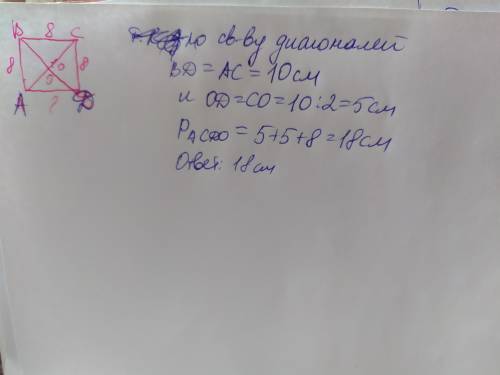 B 8 C
8 10 8
5
A ? D
по св-ву диагоналей
BD = AC = 10 см
и OD = CO = 10 : 2 = 5 см
P = 5 + 5 + 8 = 18 см
Ответ: 18 см